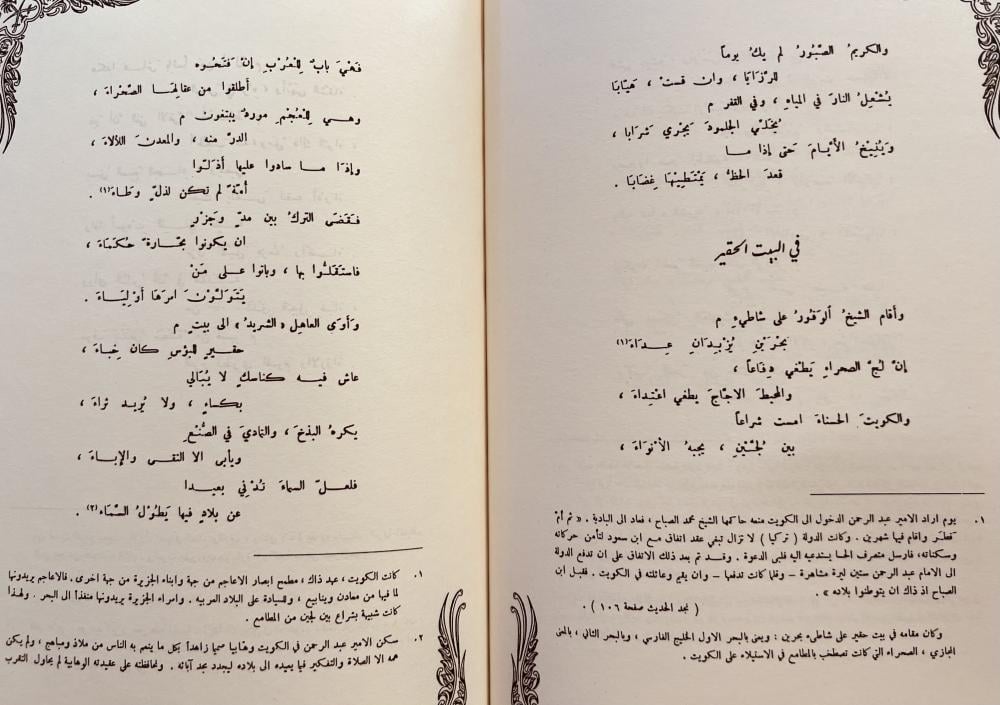 والكريمُ الصّبُورُ لم يكُ يوماً
للرّزايا ، وان قست ، هَيّابا
يُشعلُ النارَ في المياهِ ، وفي القفر م
يُخَلّي الجلمودَ يجْري شَرابا ،
وَيُنيخُ الأيّامَ حَتى إذا ما
قعدَ الحظُّ ، يَمْتَطِيْها غِضَابا .
في البيت الحقير
وأقام الشيخُ ألوَقُورُ على شاطيءِ م
بحْرَيْنِ يُزْبِدَانِ عِدَاءَ (١)
إنّ لُجّ الصحراءِ يَطْغي دِفَاعاً ،
والمحيطَ الاجّاجَ يطغي اعْتِداءَ ،
والكويتَ الحسناءَ امست شراعاً
بين لُجَّتَيْنِ ، يجبهُ الأنْوَاءَ ،
١ . يوم اراد الامير عبد الرحمن الدخول الى الكويت منعه حاكمها الشيخ محمد الصباح ، فعاد الى البادية . « ثم أمّ
قطر واقام فيها شهرين . وكانت الدولة ( تركيا ) لا تزال تبغي عقد اتفاق مع ابن سعود لتأمن حركاته
وسكناته، فارسل متصرف الحسا يستدعيه اليه فلبى الدعوة . وقد تم بعد ذلك الاتفاق على ان تدفع الدولة
الى الامام عبد الرحمن ستين ليرة مشاهرة - وقلما كانت تدفعها - وان يقيم وعائلته في الكويت . فقبل ابن
الصباح اذ ذاك ان يتوطنوا بلاده »
( نجد الحديث صفحة ١٠٦ ) .
وكان مقامه في بيت حقير على شاطىء بحرين : ويعنى بالبحر الاول الخليج الفارسي ، وبالبحر الثاني ، بالمعنى
المجازي ، الصحراء التي كانت تصطخب بالمطامع في الاستيلاء على الكويت .
فَهْيَ بابٌ للعُرْبِ إنْ فَتَحُوه
أطلقوا من عقالِها الصّحْراءَ ،
وهي للعُجْمِ موردٌ يبتغون م
الدرّ منه ، والمعدن اللألاءَ ،
وإذا ما سادوا عليها أذلّوا
أمّةً لم تكن لذلٍّ وِطاءَ (١) .
فَقَضَى التركُ بين مدٍّ وَجَزْرٍ
ان يكونوا بجّارةً حُكَمَاءَ ،
فاستَقَلُّوا بها ، وباتوا على مَنْ
يَتَوَلّوْنَ امرَهَا أوْلِيَاءَ .
وَأوَى العاهل « الشريدُ » الى بيتٍ م
حقيرٍ للبؤسِ كان خِباءَ ،
عاش فيه كناسكٍ لا يُبَالي
بكساءٍ ، ولا يُريد ثراءَ ،
يكرهُ البذخَ ، والتماديَ في الصُّنْعِ
ويأبى الا التقى والإباءَ ،
فلعلّ السماءَ تُدْنِي بعيدا
عن بلادٍ فيها يَطُولُ السّمَاءَ (٢) .
١ . كانت الكويت ، عهد ذاك ، مطمح ابصار الاعاجم من جهة وابناء الجزيرة من جهة اخرى . فالاعاجم يريدونها
لما فيها من معادن وينابيع ، وللسيادة على البلاد العربيه . وامراء الجزيرة يريدونها منفذاً الى البحر . ولهذا
كانت شبيهة بشراع بين لجين من المطامع .
٢ . سكن الامير عبد الرحمن في الكويت وهّابيا صميما زاهداً بكل ما ينعم به الناس من ملاذ ومباهج ، ولم يكن
همه الا الصلاة والتفكير فيما يعيده الى بلاده ليجدد مجد آبائه . ولمحافظته على عقيدته الوهابية لم يحاول التقرب